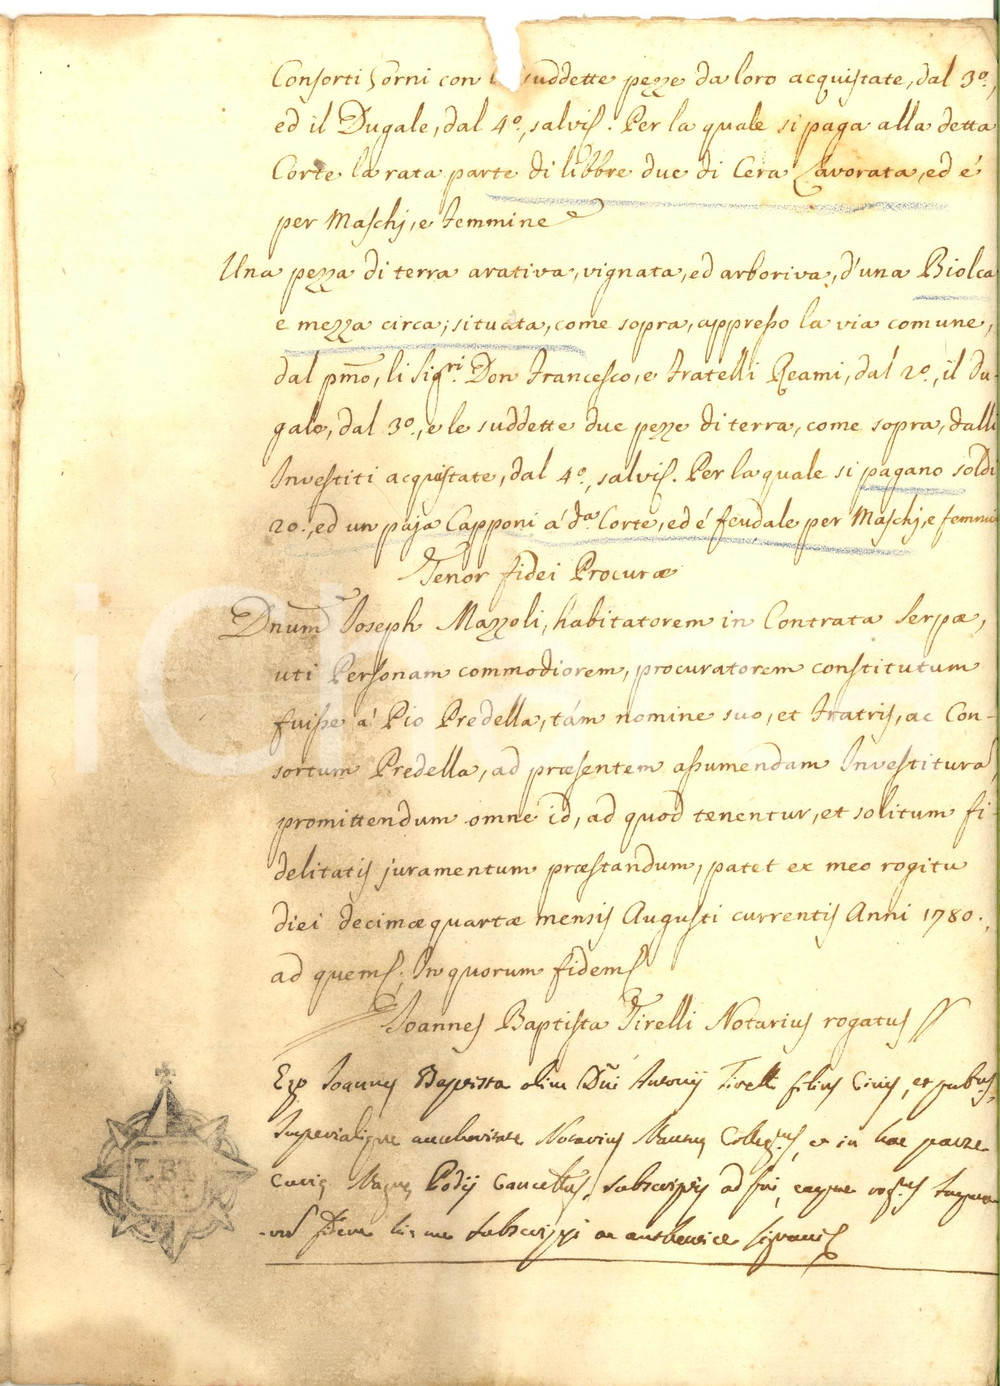 Consorti Sorni con le suddette pezze da loro acquistate, dal 3º.,
ed il Dugale, dal 4º., salvis. Per la quale si paga alla detta
Corte la rata parte di libbre due di Cera Lavorata, ed é
per Maschj, e femmine
Una pezza di terra arativa, vignata, ed arboriva, d'una Biolca
e mezza circa; situata, come sopra, appresso la via comune,
dal pmo, li Sigri. Don Francesco, e Fratelli Reami, dal 2º., il Du-
gale, dal 3º., e le suddette due pezze di terra, come sopra, dalli
Investiti acquistate, dal 4º., salvis. Per la quale si pagano soldi
20., ed un paja Capponi á da. Corte, ed é feudale per Maschj, e femmi
Tenor fidei Procuræ
Dnum Joseph Mazzoli, habitatorem in Contrata Serpæ,
uti Personam commodiorem, procuratorem constitutum
fuisse á Pio Predella, tám nomine suo, et Fratris, ac Con-
sortum Predella, ad præsentem assumendam Investitura,
promittendum omne id, ad quod tenentur, et solitum fi-
delitatis juramentum præstandum, patet ex meo rogitu
diei decimæquartæ mensis Augusti currentis Anni 1780.,
ad quem; In quorum fidem
Joannes Baptista Tirelli Notarius rogatus
Ego Joannes Baptista olim Dni Antonij Tirelli filius Civis, et pubus,
Imperialique auctoritate Notarius Collegs, et in hac parte
Podij subscripsi
subscripsi ac